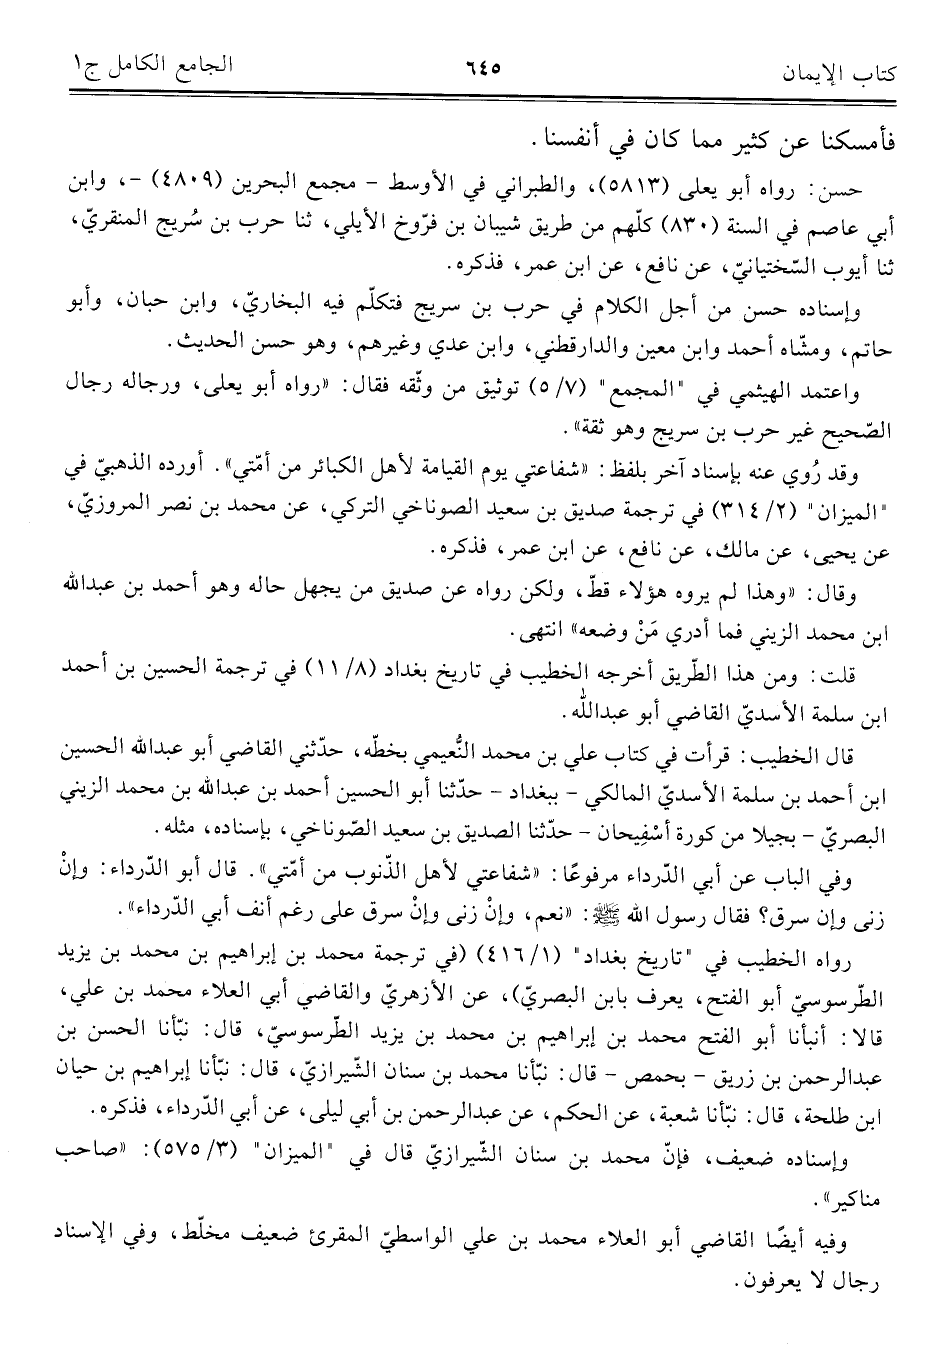 كتاب الإيمان ٦٤٥ الجامع الكامل ج١
فأمسكنا عن كثير مما كان في أنفسنا.
حسن: رواه أبو يعلى (٥٨١٣)، والطبراني في الأوسط - مجمع البحرين (٤٨٠٩) -، وابن
أبي عاصم في السنة (٨٣٠) كلّهم من طريق شيبان بن فرّوخ الأيلي، ثنا حرب بن سُريج المنقريّ،
ثنا أيوب السّختيانيّ، عن نافع، عن ابن عمر، فذكره.
وإسناده حسن من أجل الكلام في حرب بن سريج فتكلّم فيه البخاريّ، وابن حبان، وأبو
حاتم، ومشّاه أحمد وابن معين والدارقطني، وابن عدي وغيرهم، وهو حسن الحديث.
واعتمد الهيثمي في "المجمع" (٧/ ٥) توثيق من وثّقه فقال: «رواه أبو يعلى، ورجاله رجال
الصّحيح غير حرب بن سريج وهو ثقة».
وقد رُوي عنه بإسناد آخر بلفظ: «شفاعتي يوم القيامة لأهل الكبائر من أمّتي». أورده الذهبيّ في
"الميزان" (٢/ ٣١٤) في ترجمة صديق بن سعيد الصوناخي التركي، عن محمد بن نصر المروزيّ،
عن يحيى، عن مالك، عن نافع، عن ابن عمر، فذكره.
وقال: «وهذا لم يروه هؤلاء قطّ، ولكن رواه عن صديق من يجهل حاله وهو أحمد بن عبدالله
ابن محمد الزيني فما أدري مَنْ وضعه» انتهى.
قلت: ومن هذا الطّريق أخرجه الخطيب في تاريخ بغداد (٨/ ١١) في ترجمة الحسين بن أحمد
ابن سلمة الأسديّ القاضي أبو عبدالله.
قال الخطيب: قرأت في كتاب علي بن محمد النُّعيمي بخطّه، حدّثني القاضي أبو عبدالله الحسين
ابن أحمد بن سلمة الأسديّ المالكي - ببغداد - حدّثنا أبو الحسين أحمد بن عبدالله بن محمد الزيني
البصريّ - بجيلا من كورة أسْفِيحان - حدّثنا الصديق بن سعيد الصّوناخي، بإسناده، مثله.
وفي الباب عن أبي الدّرداء مرفوعًا: «شفاعتي لأهل الذّنوب من أمّتي». قال أبو الدّرداء: وإنْ
زنى وإن سرق؟ فقال رسول الله ﷺ: «نعم، وإنْ زنى وإنْ سرق على رغم أنف أبي الدّرداء».
رواه الخطيب في "تاريخ بغداد" (١/ ٤١٦) (في ترجمة محمد بن إبراهيم بن محمد بن يزيد
الطّرسوسيّ أبو الفتح، يعرف بابن البصريّ)، عن الأزهريّ والقاضي أبي العلاء محمد بن علي،
قالا: أنبأنا أبو الفتح محمد بن إبراهيم بن محمد بن يزيد الطّرسوسيّ، قال: نبّأنا الحسن بن
عبدالرحمن بن زريق - بحمص - قال: نبّأنا محمد بن سنان الشّيرازيّ، قال: نبّأنا إبراهيم بن حيان
ابن طلحة، قال: نبّأنا شعبة، عن الحكم، عن عبدالرحمن بن أبي ليلى، عن أبي الدّرداء، فذكره.
وإسناده ضعيف، فإنّ محمد بن سنان الشّيرازيّ قال في "الميزان" (٣/ ٥٧٥): «صاحب
مناكير».
وفيه أيضًا القاضي أبو العلاء محمد بن علي الواسطيّ المقرئ ضعيف مخلّط، وفي الإسناد
رجال لا يعرفون.